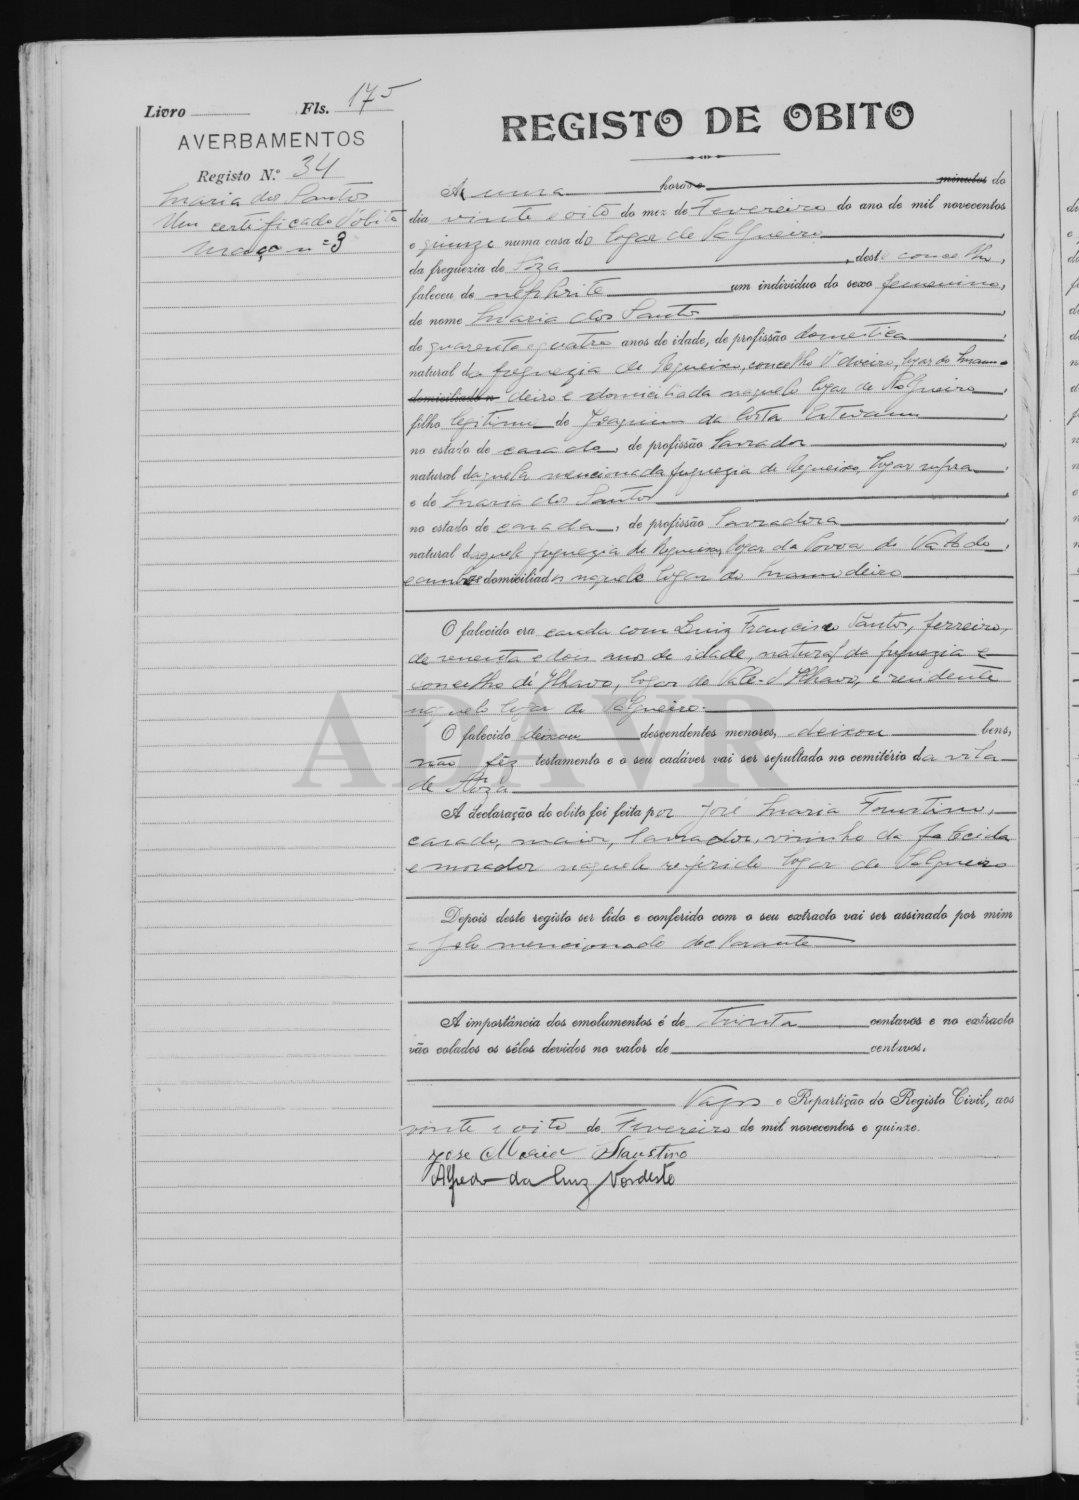 Livro Fls. 175
AVERBAMENTOS
Registo N.º 34
Maria dos Santos
Um certificado d'obito
Maço nº 3
REGISTO DE OBITO
A uma hora minutos do
dia vinte e oito do mez de Fevereiro do ano de mil novecentos
e quinze numa casa do logar de Salgueiro
da freguezia de Sôza, deste concelho,
faleceu de nephrite um individuo do sexo femenino,
de nome Maria dos Santos
de quarenta e quatro anos de idade, de profissão domestica
natural da freguezia de Requeixo, concelho d'Aveiro, logar do Mamo
domiciliado n deiro e domiciliada naquelo logar de Salgueiro
filho legitimo de Joaquim da Costa Estevam
no estado de casado, de profissão lavrador
natural daquela mencionada freguezia de Requeixo, logar supra
e de Maria dos Santos
no estado de casada, de profissão lavradora
natural daquela freguezia de Requeixo, logar da Povoa do Valado
e ambos domiciliados naquelo logar do Mamodeiro
O falecido era casada com Luiz Francisco Santos, ferreiro,
de sencenta e dois anos de idade, natural da freguezia e
concelho de Ilhavo, logar de Vale d'Ilhavo, e residente
naquelo logar de Salgueiro.
O falecido deixou descendentes menores, deixou bens,
não fêz testamento e o seu cadáver vai ser sepultado no cemitério da vila
de Sôza
A declaração do obito foi feita por José Maria Faustino,
casado, maior, lavrador, visinho da falecida
e morador naquele referido logar de Salgueiro
Depois deste registo ser lido e conferido com o seu extracto vai ser assinado por mim
e pelo mencionado declarante
A importância dos emolumentos é de trinta centavos e no extracto
vão colados os sêlos devidos no valor de centavos.
Vagos e Repartição do Registo Civil, aos
vinte e oito de Fevereiro de mil novecentos e quinze.
Jose Maria Faustino
Alfredo da Luz
ADAVR